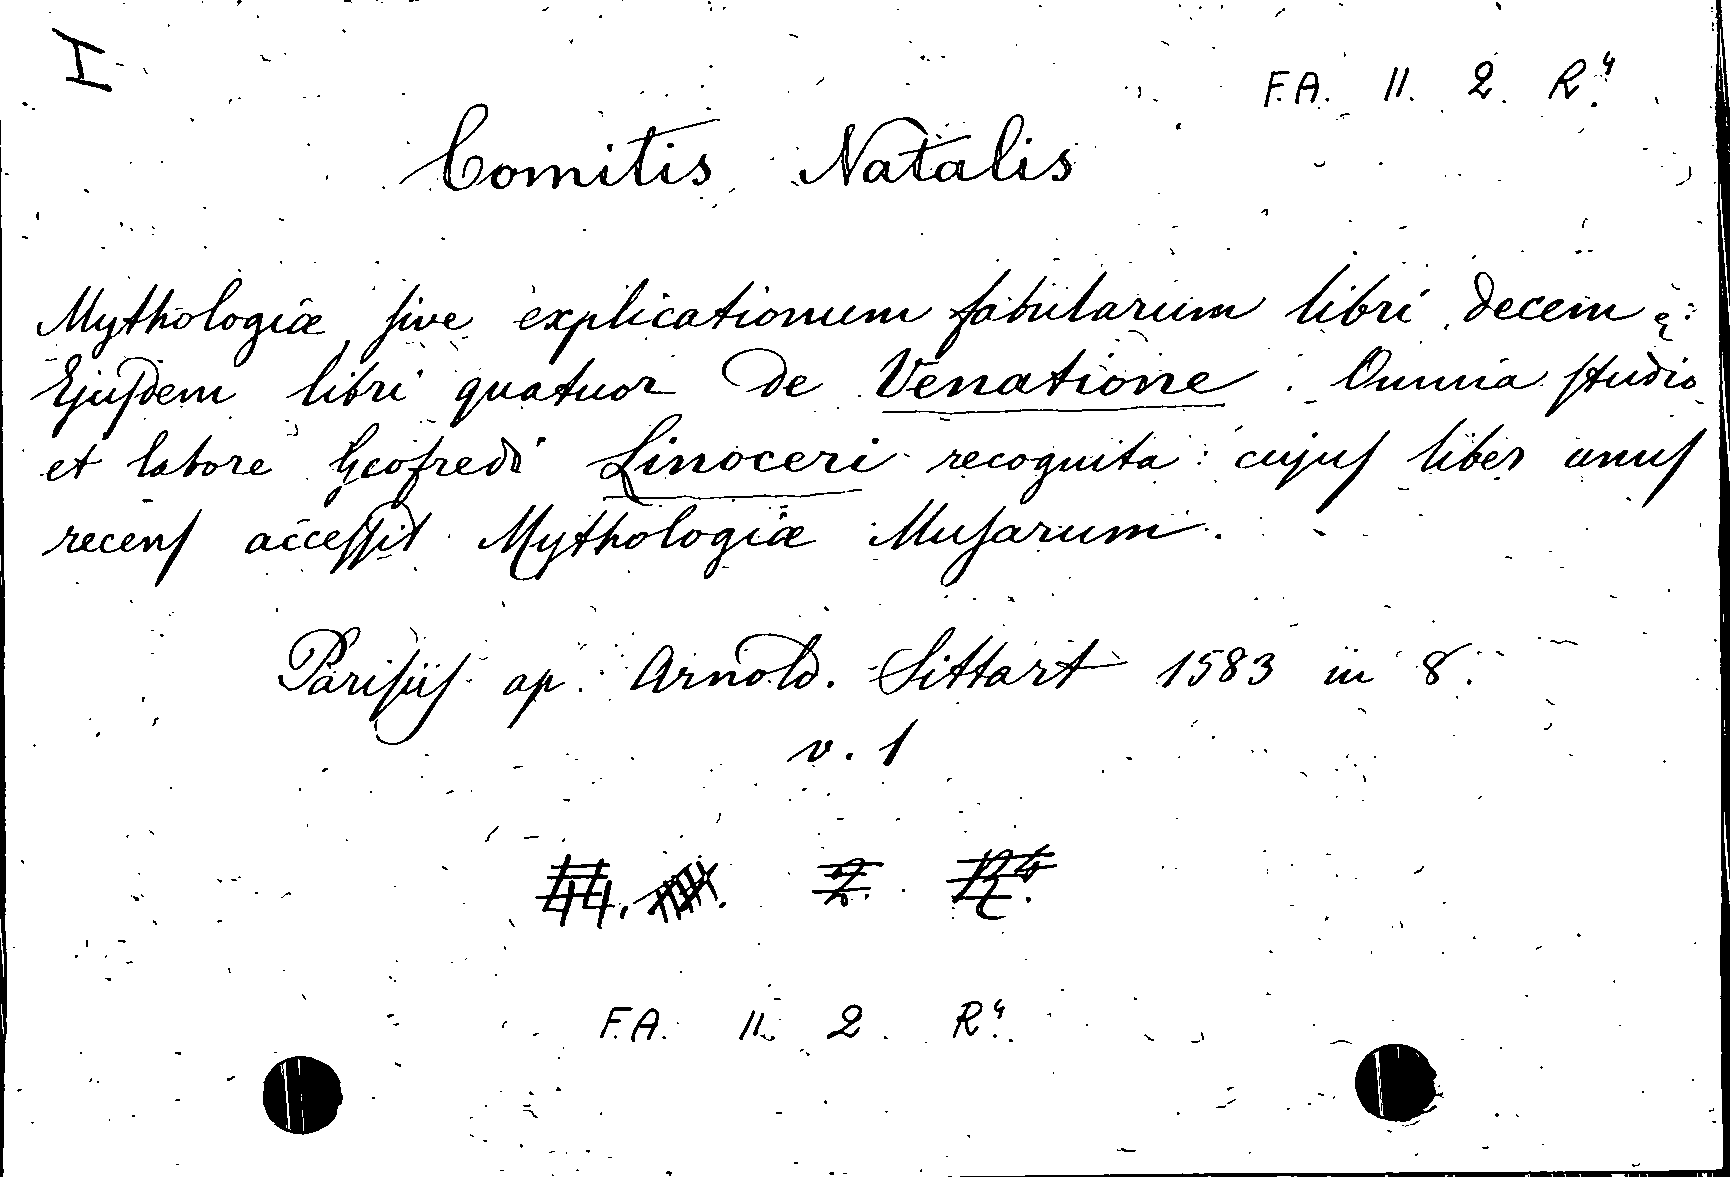 I
F.A. II. 2. R⁴.
Comitis Natalis
Mythologiæ, ſive explicationum fabularum libri decem
Ejuſdem libri quatuor de Venatione. Omnia ſtudio
et labore Geofredi Linoceri recognita: cujuſ liber unuſ
recenſ acceſſit Mythologiæ Muſarum.
Pariſiiſ ap. Arnold. Sittart 1583 in 8.
v. 1
F.A. II. 2. R⁴.